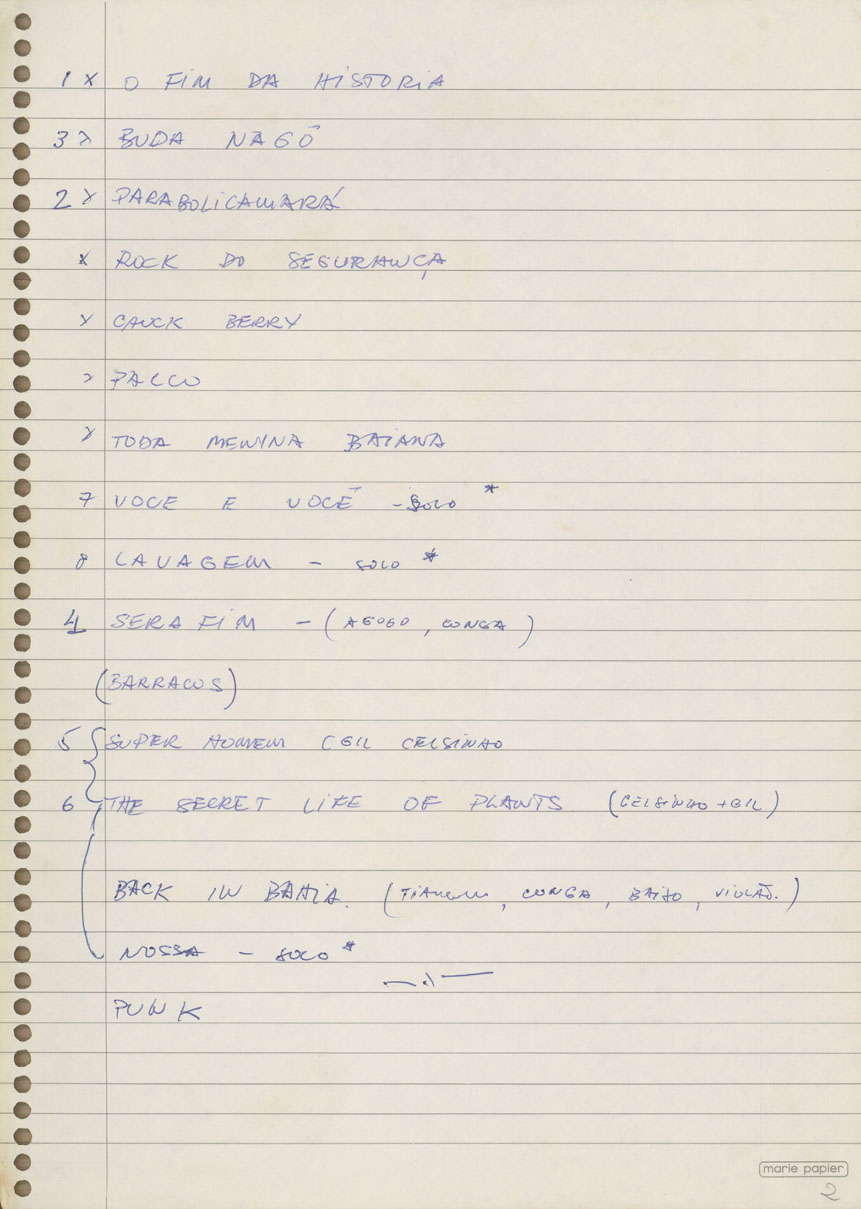 1 x O FIM DA HISTORIA
3 x BUDA NAGÔ
2 x PARABOLICAMARÁ
x ROCK DO SEGURANÇA
x CHUCK BERRY
x PALCO
x TODA MENINA BAIANA
7 VOCE E VOCÊ - SOLO *
8 LAVAGEM - SOLO *
4 SERAFIM - (AGOGO, CONGA)
(BARRACOS)
5 SUPER HOMEM (GIL CELSINHO
6 THE SECRET LIFE OF PLANTS (CELSINHO + GIL)
BACK IN BAHIA. (, CONGA, BAIXO, VIOLÃO.)
NOSSA - SOLO *
PUNK
marie papier
2